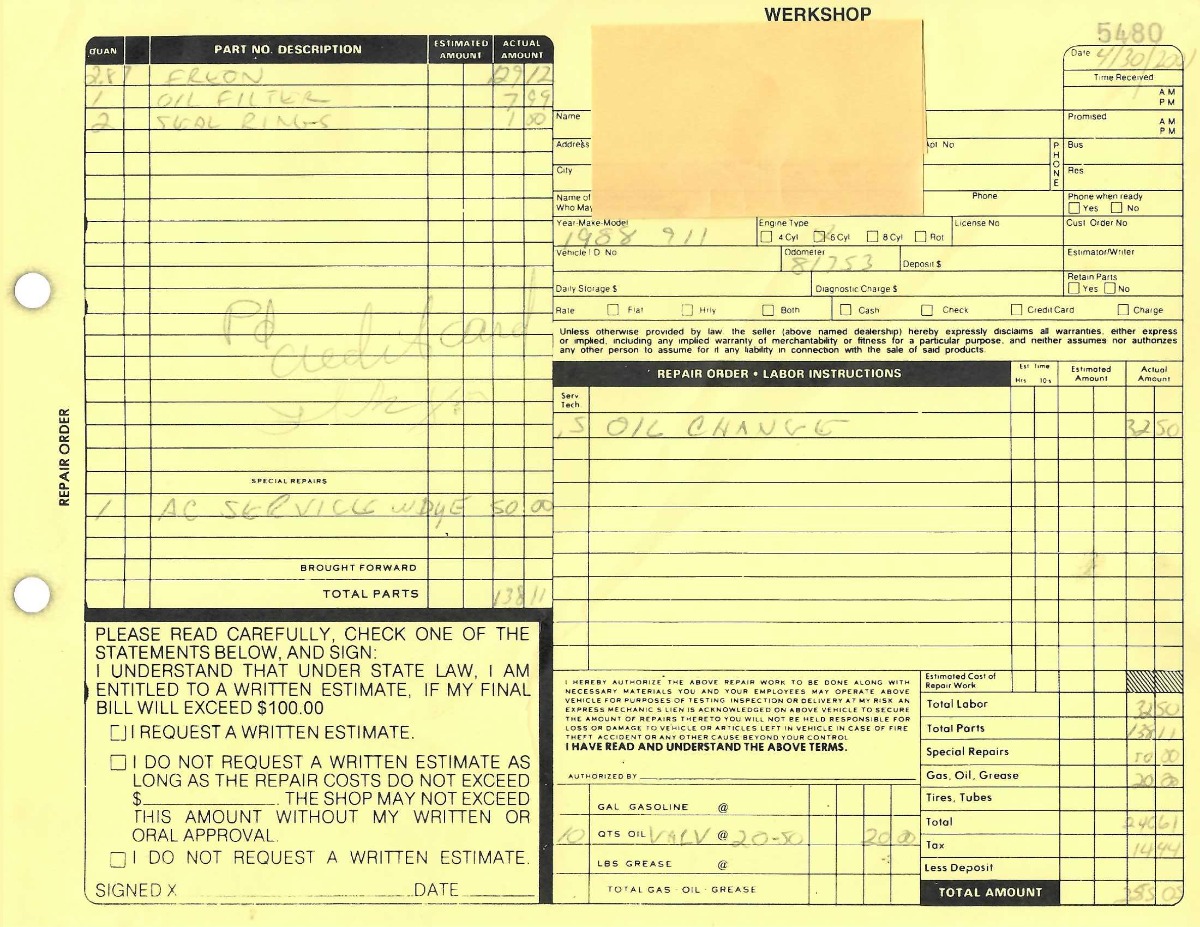 WERKSHOP
5480
QUAN PART NO. DESCRIPTION ESTIMATED AMOUNT ACTUAL AMOUNT
2.87 FREON 129 12
1 OIL FILTER 7 99
2 SEAL RINGS 1 00
Pd
credit card
SPECIAL REPAIRS
1 AC SERVICE W DYE 50.00
BROUGHT FORWARD
TOTAL PARTS 138 11
REPAIR ORDER
PLEASE READ CAREFULLY, CHECK ONE OF THE
STATEMENTS BELOW, AND SIGN:
I UNDERSTAND THAT UNDER STATE LAW, I AM
ENTITLED TO A WRITTEN ESTIMATE, IF MY FINAL
BILL WILL EXCEED $100.00
I REQUEST A WRITTEN ESTIMATE.
I DO NOT REQUEST A WRITTEN ESTIMATE AS
LONG AS THE REPAIR COSTS DO NOT EXCEED
$ . THE SHOP MAY NOT EXCEED
THIS AMOUNT WITHOUT MY WRITTEN OR
ORAL APPROVAL.
I DO NOT REQUEST A WRITTEN ESTIMATE.
SIGNED X DATE
Date 4/30/2001
Time Received
AM
PM
Name Promised AM
PM
Address Apt No PHONE Bus
City Res
Name of Phone Phone when ready
Who May Yes No
Year-Make-Model Engine Type License No Cust Order No
1988 911 4 Cyl 6 Cyl 8 Cyl Rot
Vehicle I D No Odometer Estimator/Writer
81753 Deposit $
Retain Parts
Daily Storage $ Diagnostic Charge $ Yes No
Rate Flat Hrly Both Cash Check Credit Card Charge
Unless otherwise provided by law, the seller (above named dealership) hereby expressly disclaims all warranties, either express
or implied, including any implied warranty of merchantability or fitness for a particular purpose, and neither assumes nor authorizes
any other person to assume for it any liability in connection with the sale of said products.
REPAIR ORDER • LABOR INSTRUCTIONS Est Time Hrs 10's Estimated Amount Actual Amount
Serv
Tech
.5 OIL CHANGE 32 50
I HEREBY AUTHORIZE THE ABOVE REPAIR WORK TO BE DONE ALONG WITH
NECESSARY MATERIALS YOU AND YOUR EMPLOYEES MAY OPERATE ABOVE
VEHICLE FOR PURPOSES OF TESTING INSPECTION OR DELIVERY AT MY RISK AN
EXPRESS MECHANIC S LIEN IS ACKNOWLEDGED ON ABOVE VEHICLE TO SECURE
THE AMOUNT OF REPAIRS THERETO YOU WILL NOT BE HELD RESPONSIBLE FOR
LOSS OR DAMAGE TO VEHICLE OR ARTICLES LEFT IN VEHICLE IN CASE OF FIRE
THEFT ACCIDENT OR ANY OTHER CAUSE BEYOND YOUR CONTROL
I HAVE READ AND UNDERSTAND THE ABOVE TERMS.
AUTHORIZED BY
GAL GASOLINE @
10 QTS OIL VALV @ 20-50 20 00
LBS GREASE @
TOTAL GAS - OIL - GREASE
Estimated Cost of
Repair Work
Total Labor 32 50
Total Parts 138 11
Special Repairs 50 00
Gas, Oil, Grease 20 00
Tires, Tubes
Total 240 61
Tax 14 44
Less Deposit
TOTAL AMOUNT 255 05